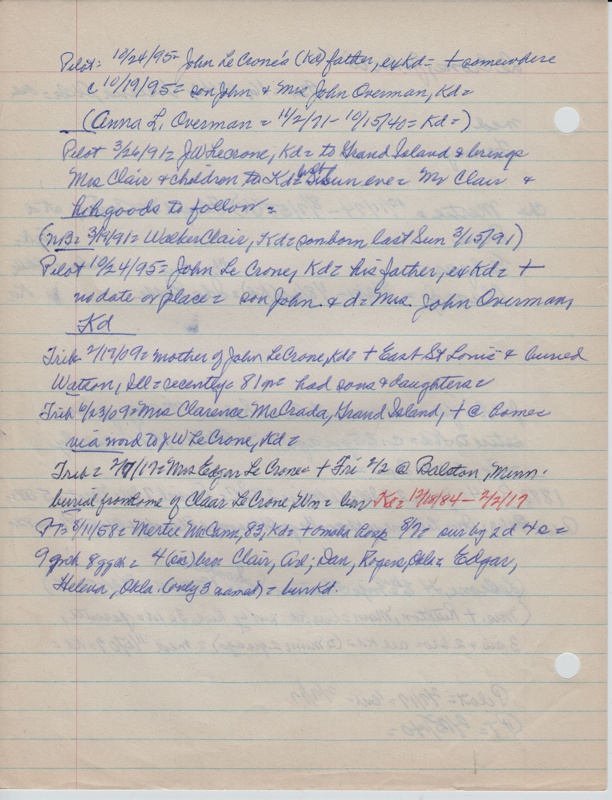 Pilot= 10/24/95= John LeCrone's (Kd) father, ex Kd= + somewhere
c 10/19/95= son John & Mrs John Overman, Kd=
(Anna L. Overman = 11/2/71 - 10/15/40= Kd=)
Pilot 3/26/91= JW LeCrone, Kd= to Grand Island & brings
Mrs Clair & children to Kd= last Sun eve= Mr Clair &
hshgoods to follow=
(NB= 3/19/91= Walker Clair, Kd= son born last Sun 3/15/91)
Pilot 10/24/95= John Le Crone, Kd= his father, ex Kd= +
no date or place= son John & d= Mrs. John Overman,
Kd
Trib 2/17/09= mother of John LeCrone, Kd= + East St Louis & buried
Watson, Ill= recently= 81 yr= had sons & daughters=
Trib 4/23/09= Mrs Clarence McCrada, Grand Island, + @ home
via word to JW LeCrone, Kd=
Trib= 2/7/17= Mrs Edgar LeCrone= + Fri 2/2 @ Balaton, Minn.
burial from home of Clair LeCrone, = Kd= 12/10/84 - 2/2/17
PT= 8/11/58= Mertie McCann, 83, Kd= + Omaha hosp sur by 2 d 4 s=
9 gch 8 ggch= 4 bros Clair, ; Dan, Rogers, Okla= Edgar,
Helena, Okla. (only 3 named)= bur Kd.